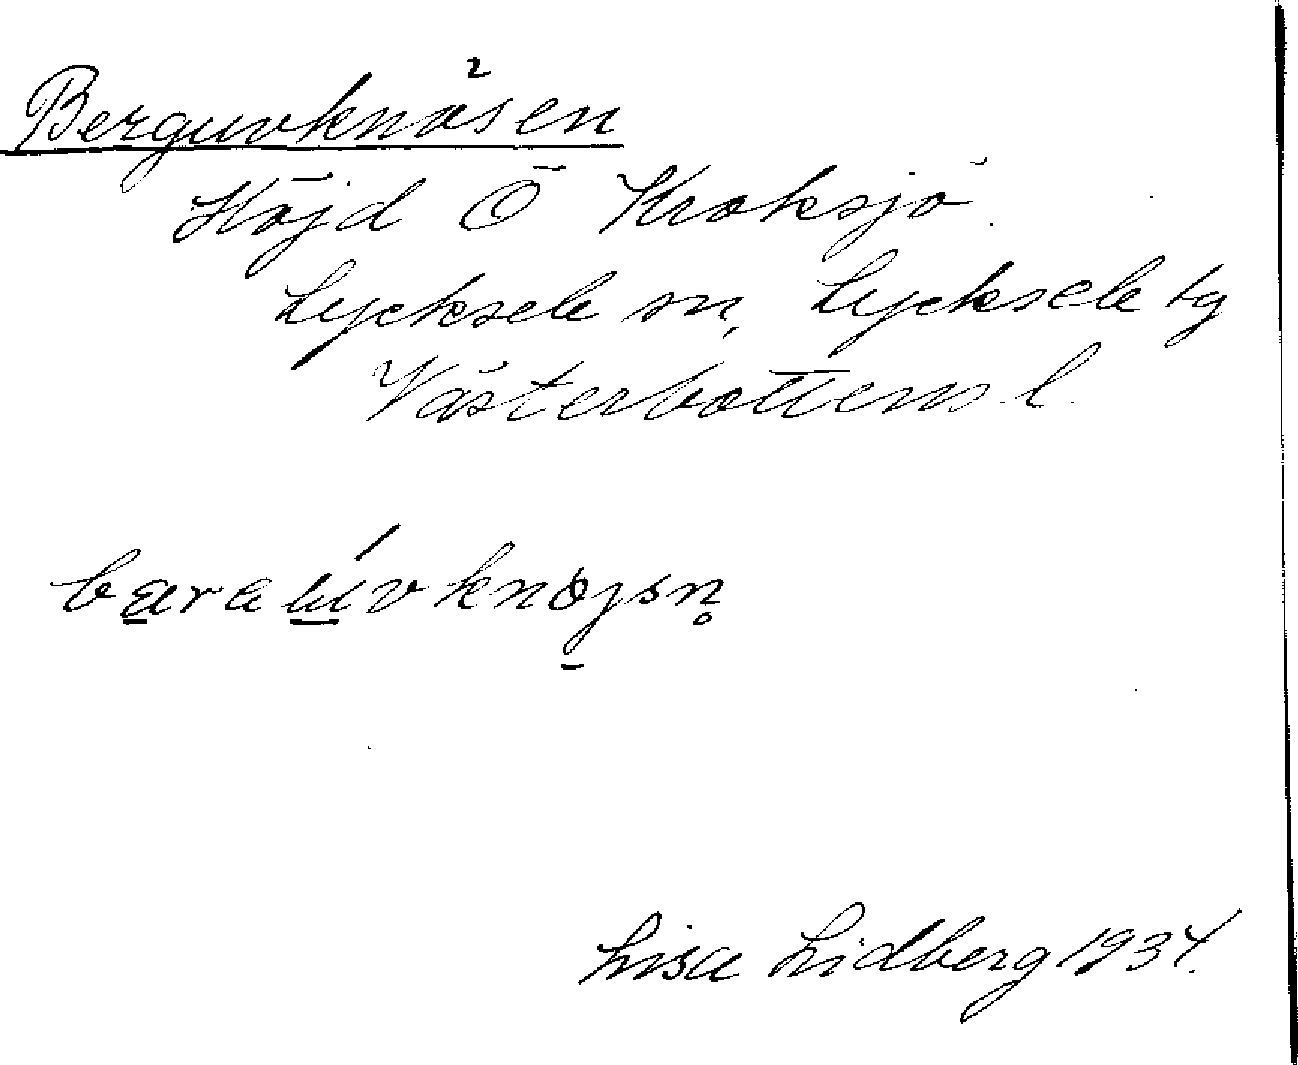 Berguvknösen
Höjd Ö Kroksjö.
Lycksele sn, Lycksele tg
Västerbottens l.
bara úvknöjsn̥
Lisa Lidberg 1934.